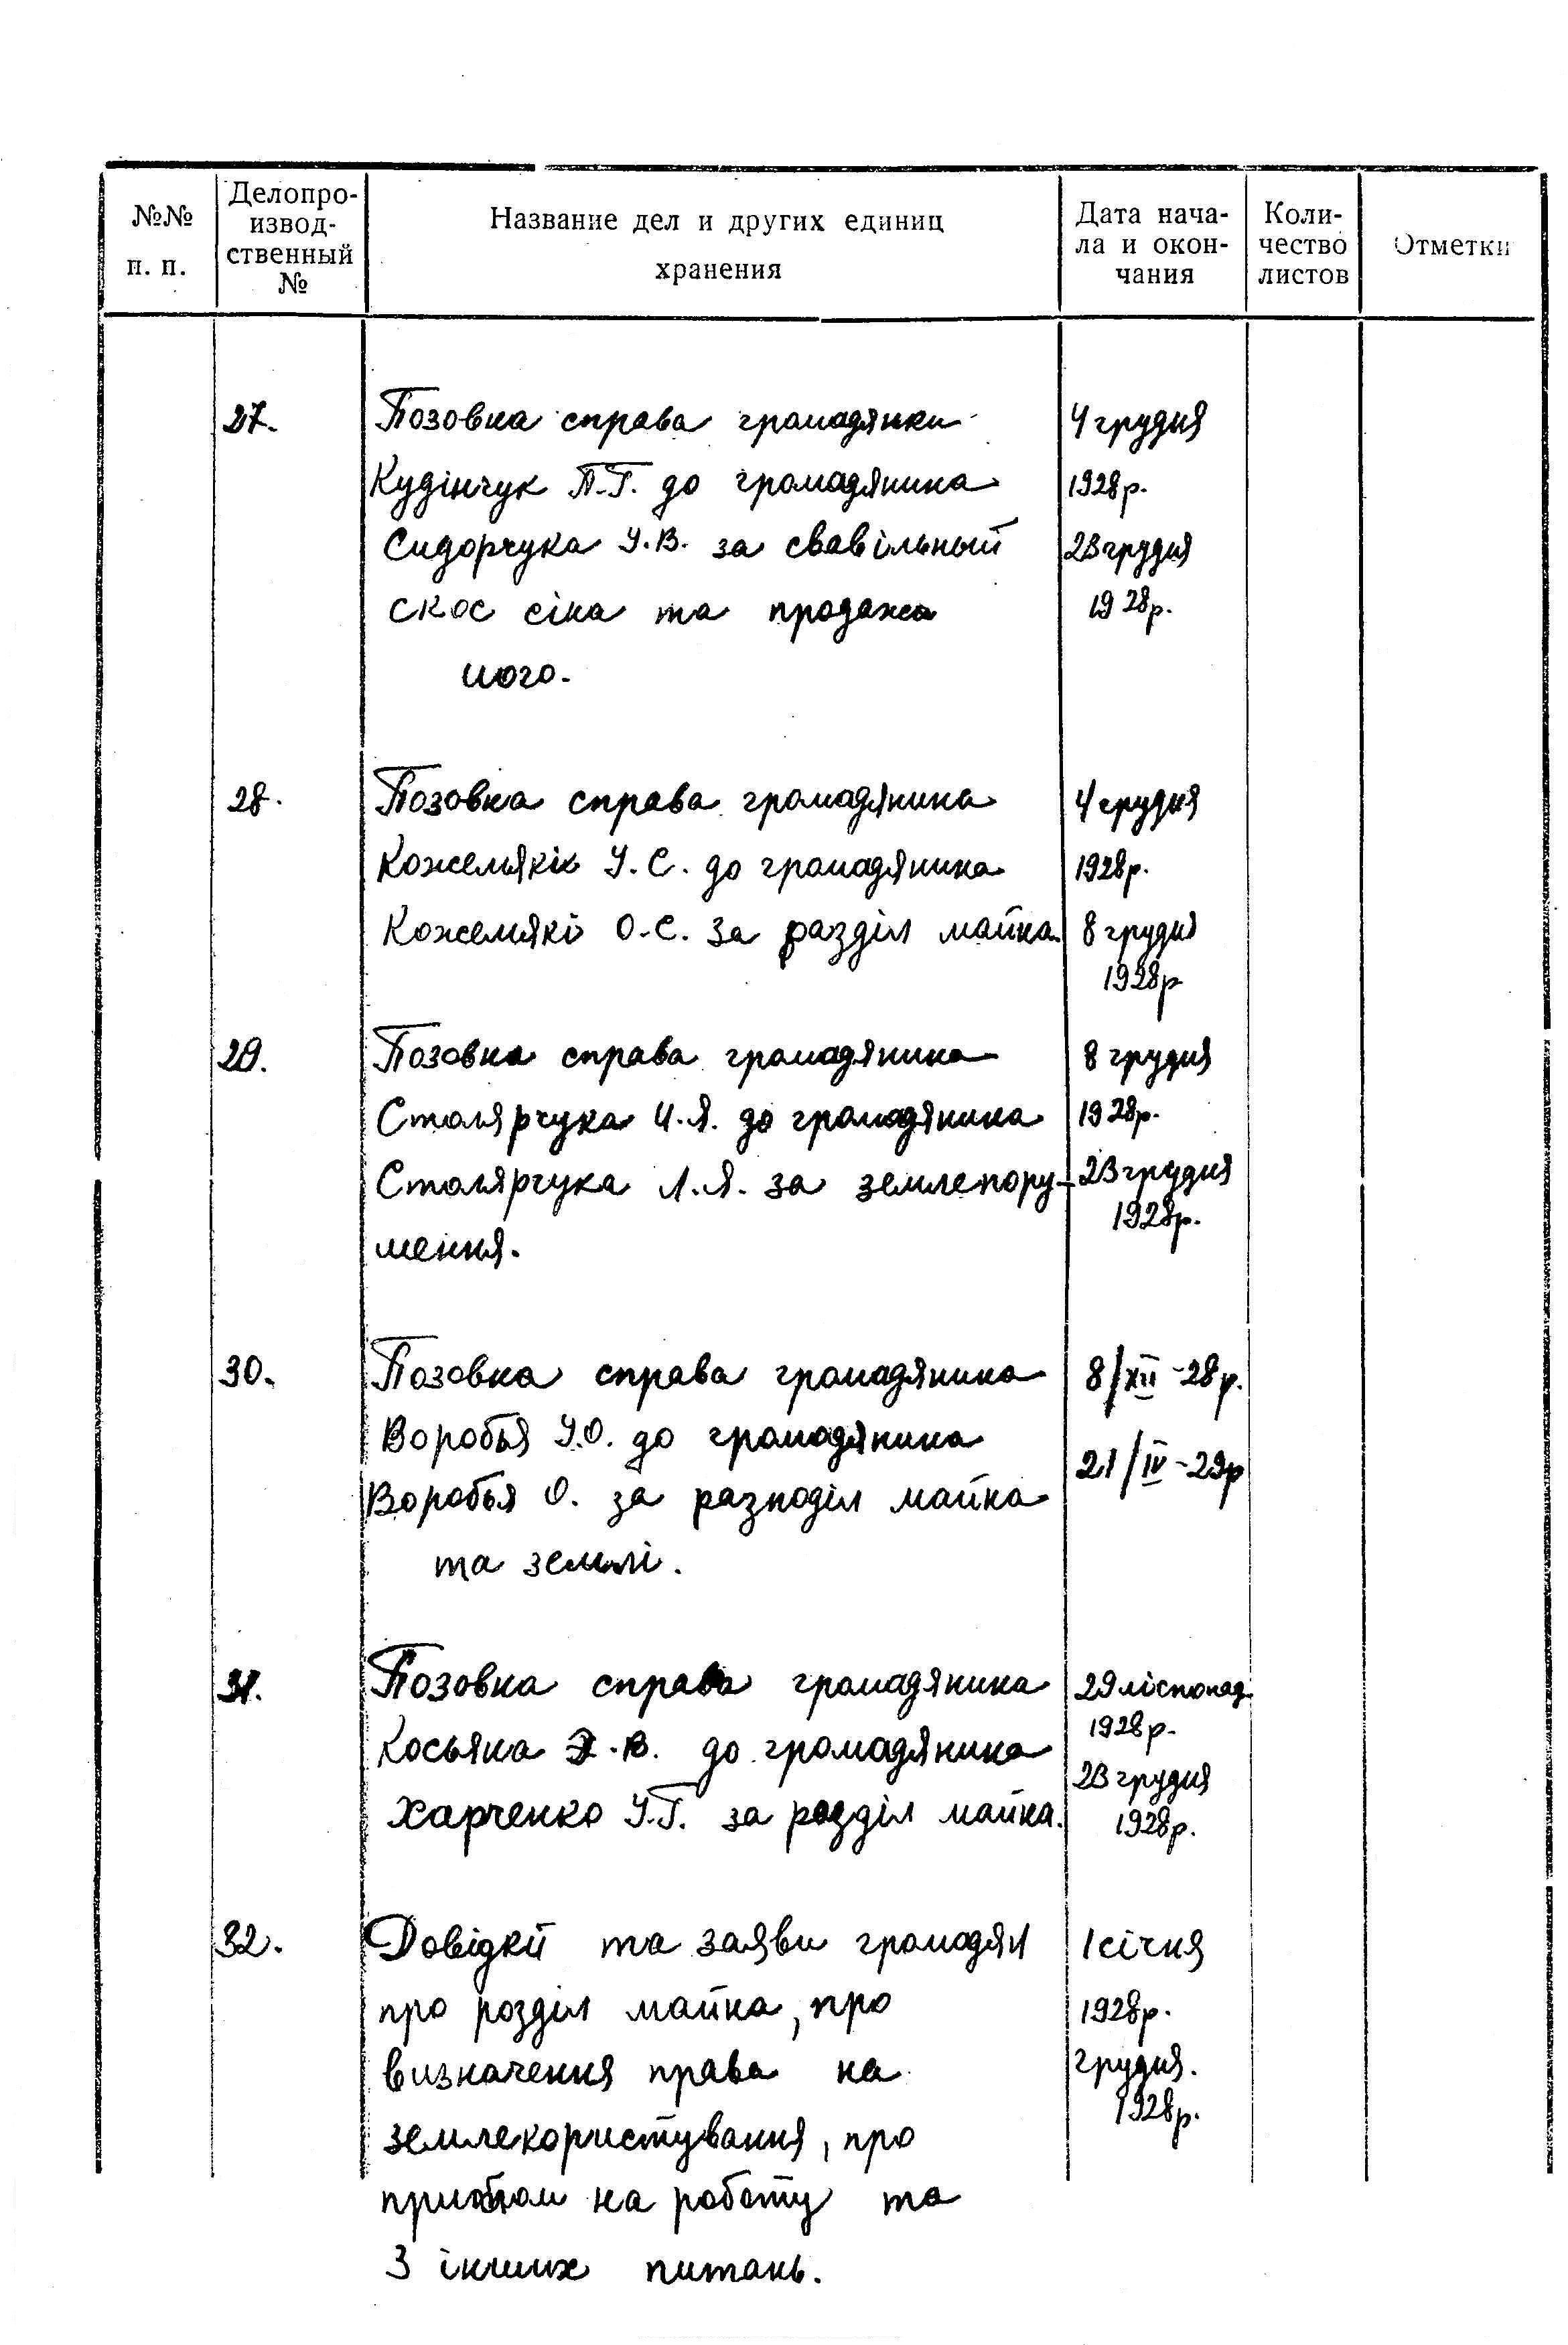 №№ п. п.
Делопро-
извод-
ственный
№
Название дел и других единиц
хранения
Дата нача-
ла и окон-
чания
Коли-
чество
листов
Отметки
27.
Позовна справа громадянки
Кудінчук П.Г. до громадянина
Сидорчука У.В. за свавільный
скос сіна та продажа
його.
4 грудня
1928р.
23 грудня
1928р.
28.
Позовна справа громадянина
Кожемякік У.С. до громадянина
Кожемякі О.С. за разділ майна.
4 грудня
1928р.
8 грудня
1928р
29.
Позовна справа громадянина
Столярчука И.Я. до громадянина
Столярчука Л.Я. за землепору-
шення.
8 грудня
1928р.
23 грудня
1928р.
30.
Позовна справа громадянина
Воробья У.О. до громадянина
Воробья О. за разподіл майна
та землі.
8/XII-28р.
21/IV-29р
31.
Позовна справа громадянина
Косьяна В. до громадянина
Харченко У.Г. за розділ майна.
29 ліспопад.
1928р.
23 грудня
1928р.
32.
Довідкй та заяви громадян
про розділ майна, про
визначення права на
землекористування, про
прийом на роботу та
З інших питань.
1 січня
1928р.
грудня.
1928р.